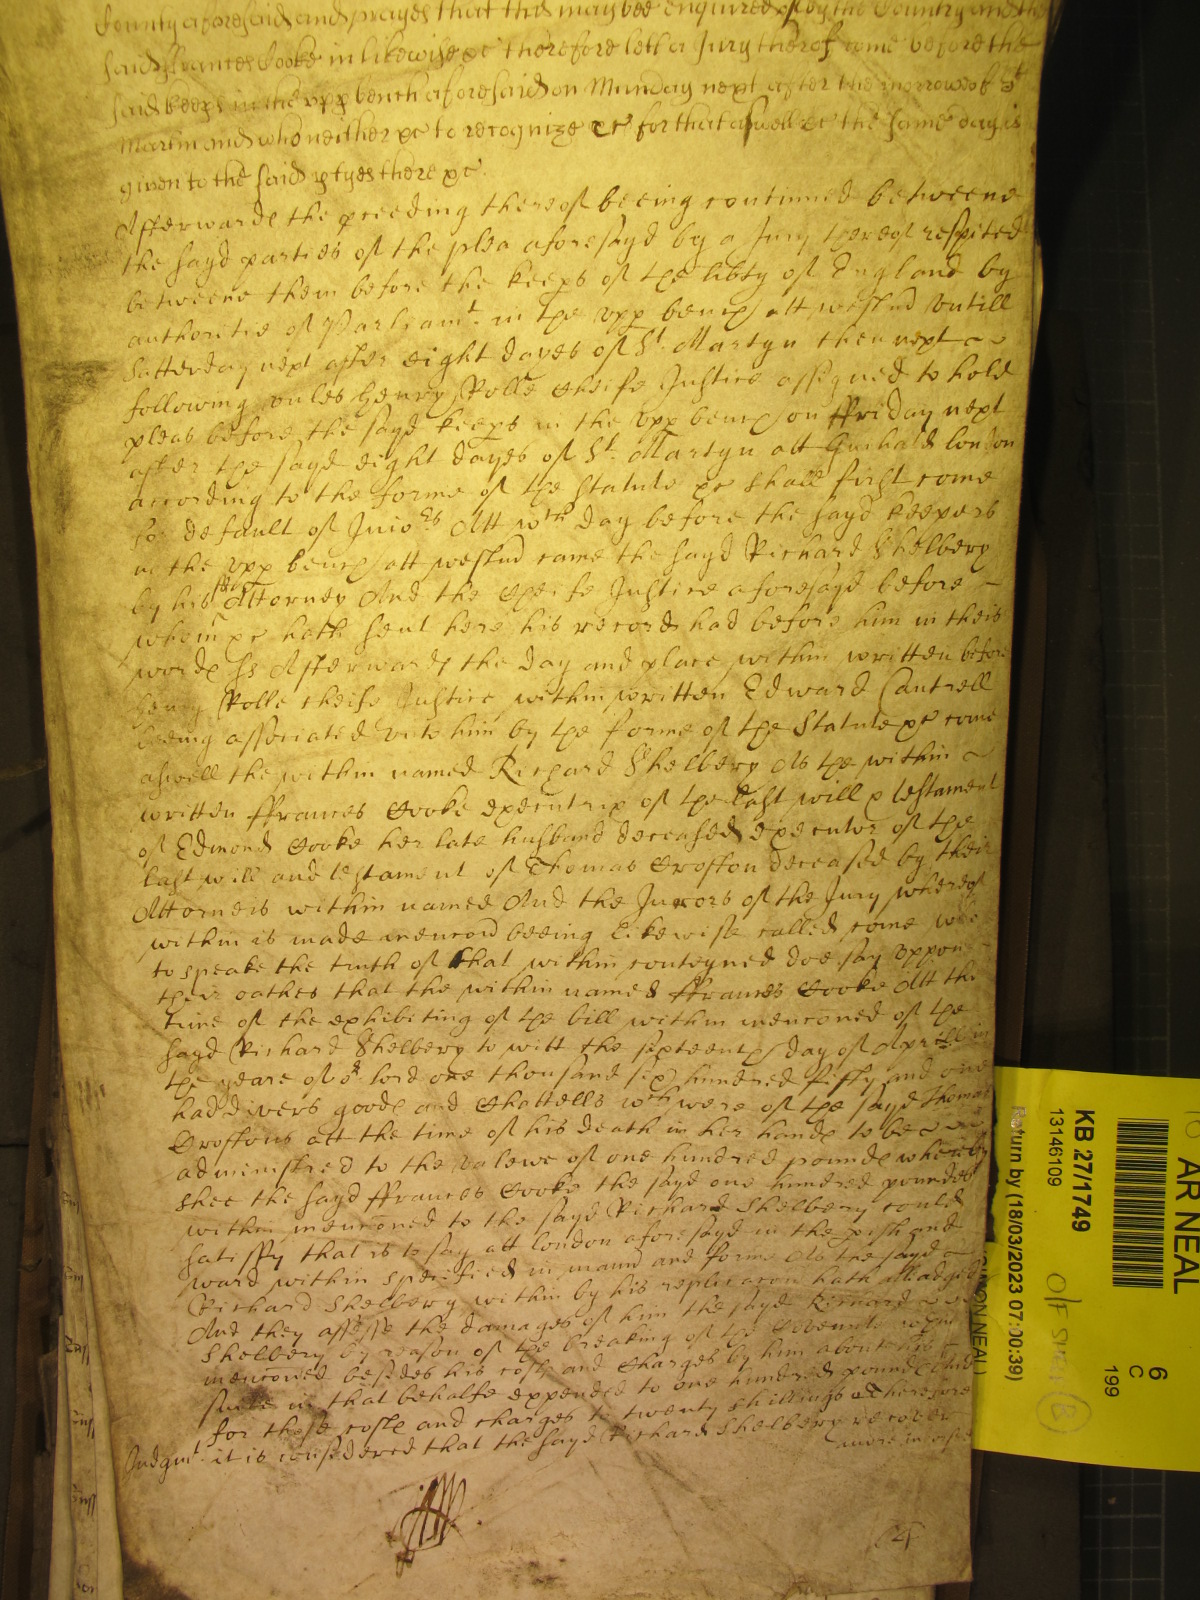 County aforesaid and prayes that this may bee enquired of by the Country and the
said Frances Cooke in likewise &c therefore lett a Jury therof come before the
said keeps in the upp bench aforesaid on Munday next after the morrow of St
Martin and who neither &c to recognize &c for that aswell &c the same day is
given to the said ptyes there &c.
Afterwards the pceeding thereof beeing continued betweene
the sayd parties of the plea aforesayd by a Jury thereof respited
betweene them before the keeps of the libty of England by
authoritie of Parliamt. in the upp bench att westm untill
Satterday next after eight dayes of St. Martyn then next
following unles Henry Rolle Cheife Justice assigned to hold
pleas before the sayd keeps in the upp bench on ffriday next
after the sayd eight dayes of St. Martyn att Guihald london
according to the forme of the statute &c shall first come
for default of Jurors Att wch day before the sayd keepers
in the upp bench att westm came the sayd Richard Shelbery
by his sd Attorney And the Cheife Justice aforesayd before
whom &c hath sent here his record had before him in theis
words ss Afterwards the day and place within written before
Henry Rolle cheife Justice within written Edward Cantrell
beeing associated unto him by the forme of the Statute &c come
aswell the within named Richard Shelbery As the within
written ffrances Cooke executrix of the last will & testament
of Edmond Cooke her late husband deceased executor of the
last will and testament of Thomas Crofton deceased by their
Attorneis within named And the Jurors of the Jury whereof
within is made mencon beeing likewise called come who
to speake the truth of that within conteyned doe say uppon
their oathes that the within named ffrances Cooke Att the
time of the exhibiting of the bill within menconed of the
sayd Richard Shelbery to witt the sixteenth day of Aprill in
the yeare of or lord one thousand six hundred fifty and one
had divers goods and Chattells wch were of the sayd Thomas
Croftons att the time of his death in her hands to be
administred to the valewe of one hundred pounds whereby
shee the sayd ffrances Cooke the sayd one hundred poundes
within menconed to the sayd Richard Shelbery could
satisfy that is to say att london aforesayd in the pish and
ward within specified in mann and forme As the sayd
Richard Shelbery within by his replicacon hath alleadged
And they assesse the damages of him the sayd Richard
Shelbery by reason of the breaking of the Covennts within
menconed besides his costs and Charges by him about his
suite in that behalfe expended to one hundred pounds And
for those costs and charges to twenty shillings Therefore
Judgmt. it is considered that the sayd Richard Shelbery recover
more in dorso
AR NEAL
KB 27/1749
13146109
Return by (18/03/2023 07:00:39)
(SIMON NEAL)
6
C
199
O/F
B